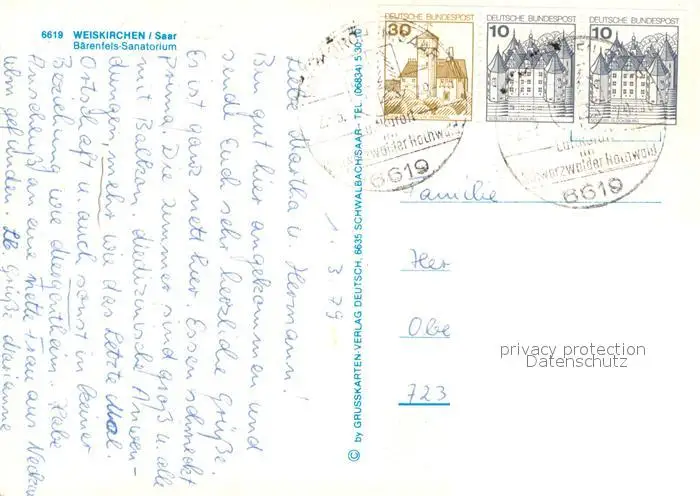 6619 WEISKIRCHEN / Saar
Bärenfels-Sanatorium
1.3.79
Liebe Martha u. Hermann!
Bin gut hier angekommen und
sende Euch sehr herzliche Grüße.
Es ist ganz nett hier. Essen schmeckt
prima. Die Zimmer sind groß u. alle
mit Balkon. Medizinische Anwen-
dungen, mehr wie das letzte Mal.
Ortschaft u. auch sonst in keiner
Beziehung wie Mergentheim. Habe
Anschluß an eine nette Frau aus
ulm gefunden. Lb. Grüße Marianne
© by GRUSSKARTEN-VERLAG DEUTSCH, 6635 SCHWALBACH/SAAR - TEL. (06834) 5 30 10
DEUTSCHE BUNDESPOST
30
DEUTSCHE BUNDESPOST
10
DEUTSCHE BUNDESPOST
10
Luftkurort
im
Schwarzwälder Hochwald
6619
Luftkurort
im
Schwarzwälder Hochwald
6619
Familie
Her
Obe
723
privacy protection
Datenschutz